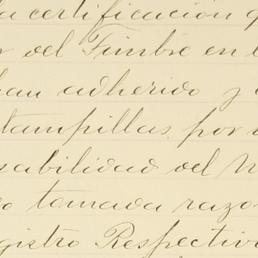 la certificación q
r del Timbre en l
han adherido y
tampillas por
sabilidad del M
o tomada razo
gistro Respectiv